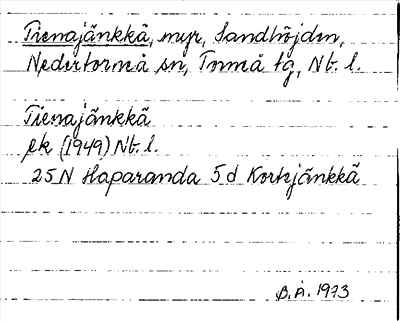 Tienajänkkä, myr, Sandhöjden,
Nedertorneå sn, Torneå tg, Nb. l.
Tienajänkkä
ek (1949) Nb. l.
25N Haparanda 5d Korkjänkkä
B.Å. 1973